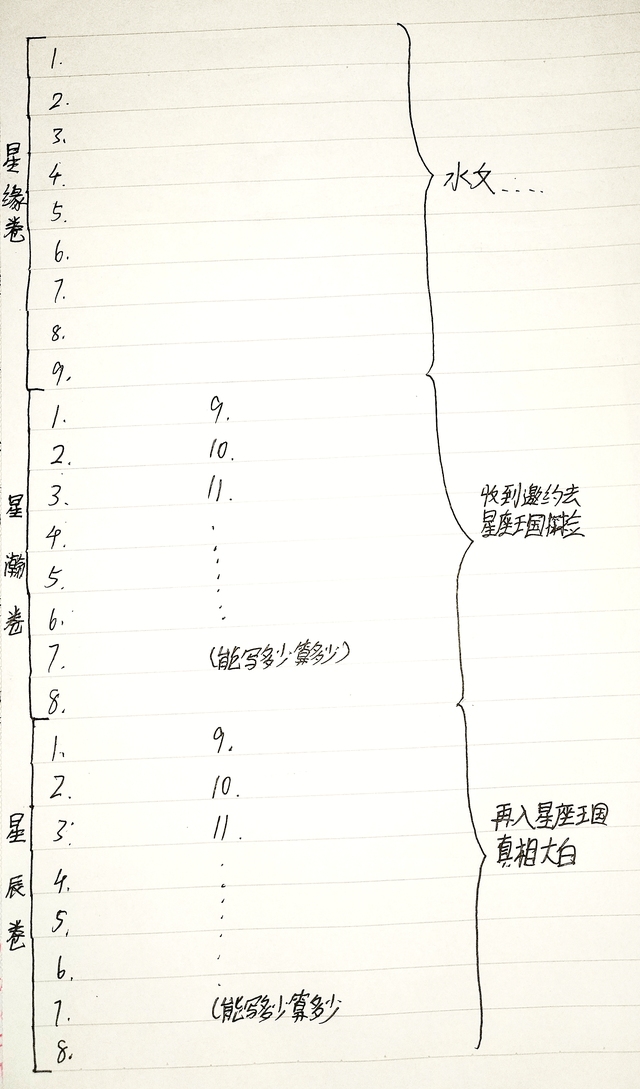 星缘卷
1.
2.
3.
4.
5.
6.
7.
8.
9.
水文....
星瀚卷
1.
2.
3.
4.
5.
6.
7.
8.
9.
10.
11.
......
(能写多少算多少)
收到邀约去
星座王国探险
星辰卷
1.
2.
3.
4.
5.
6.
7.
8.
9.
10.
11.
......
(能写多少算多少
再入星座王国
真相大白